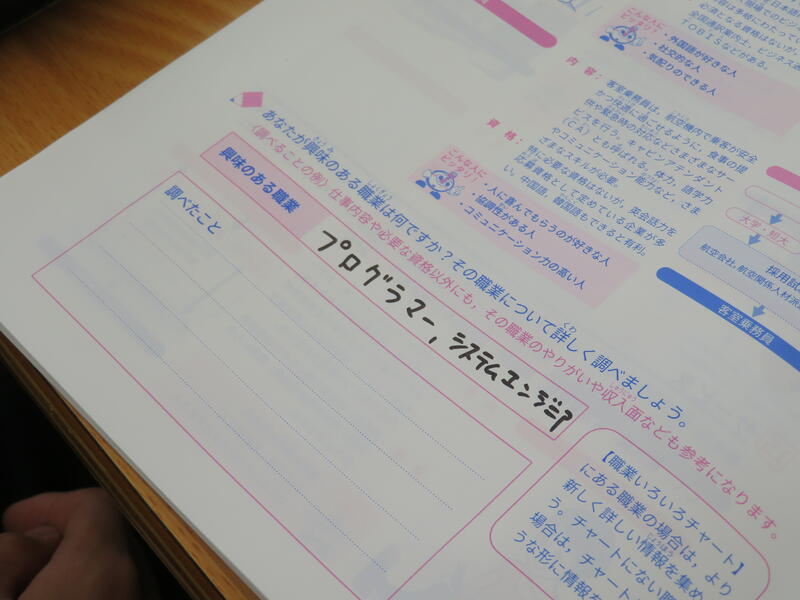 こんな人に
ピッタリ!
・外国語が好きな人
・社交的な人
・気配りのできる人
内容:
客室乗務員は、航空機内で乗客が安全
かつ快適に過ごせるように、食事の提
供や緊急時の対応などさまざまなサー
ビスを行う。キャビンアテンダント
(CA)とも呼ばれる。体力、語学力
やコミュニケーション能力など、さま
ざまなスキルが必要。
資格:
特に必要な資格はないが、英会話力を
応募資格として定めている企業が多
い。中国語、韓国語もできると有利。
こんな人に
ピッタリ!
・人に喜んでもらうのが好きな人
・協調性がある人
・コミュニケーション力の高い人
大学・短大
採用試
航空会社、航空関係人材派
客室乗務員
あなたが興味のある職業は何ですか?その職業について詳しく調べましょう。
〈調べることの例〉仕事内容や必要な資格以外にも、その職業のやりがいや収入面なども参考になります。
興味のある職業
プログラマー, システムエンジニア
調べたこと
【職業いろいろチャート】
にある職業の場合は、より
新しく詳しい情報を集め
う。チャートにない職
場合は、チャート
うな形に情報を